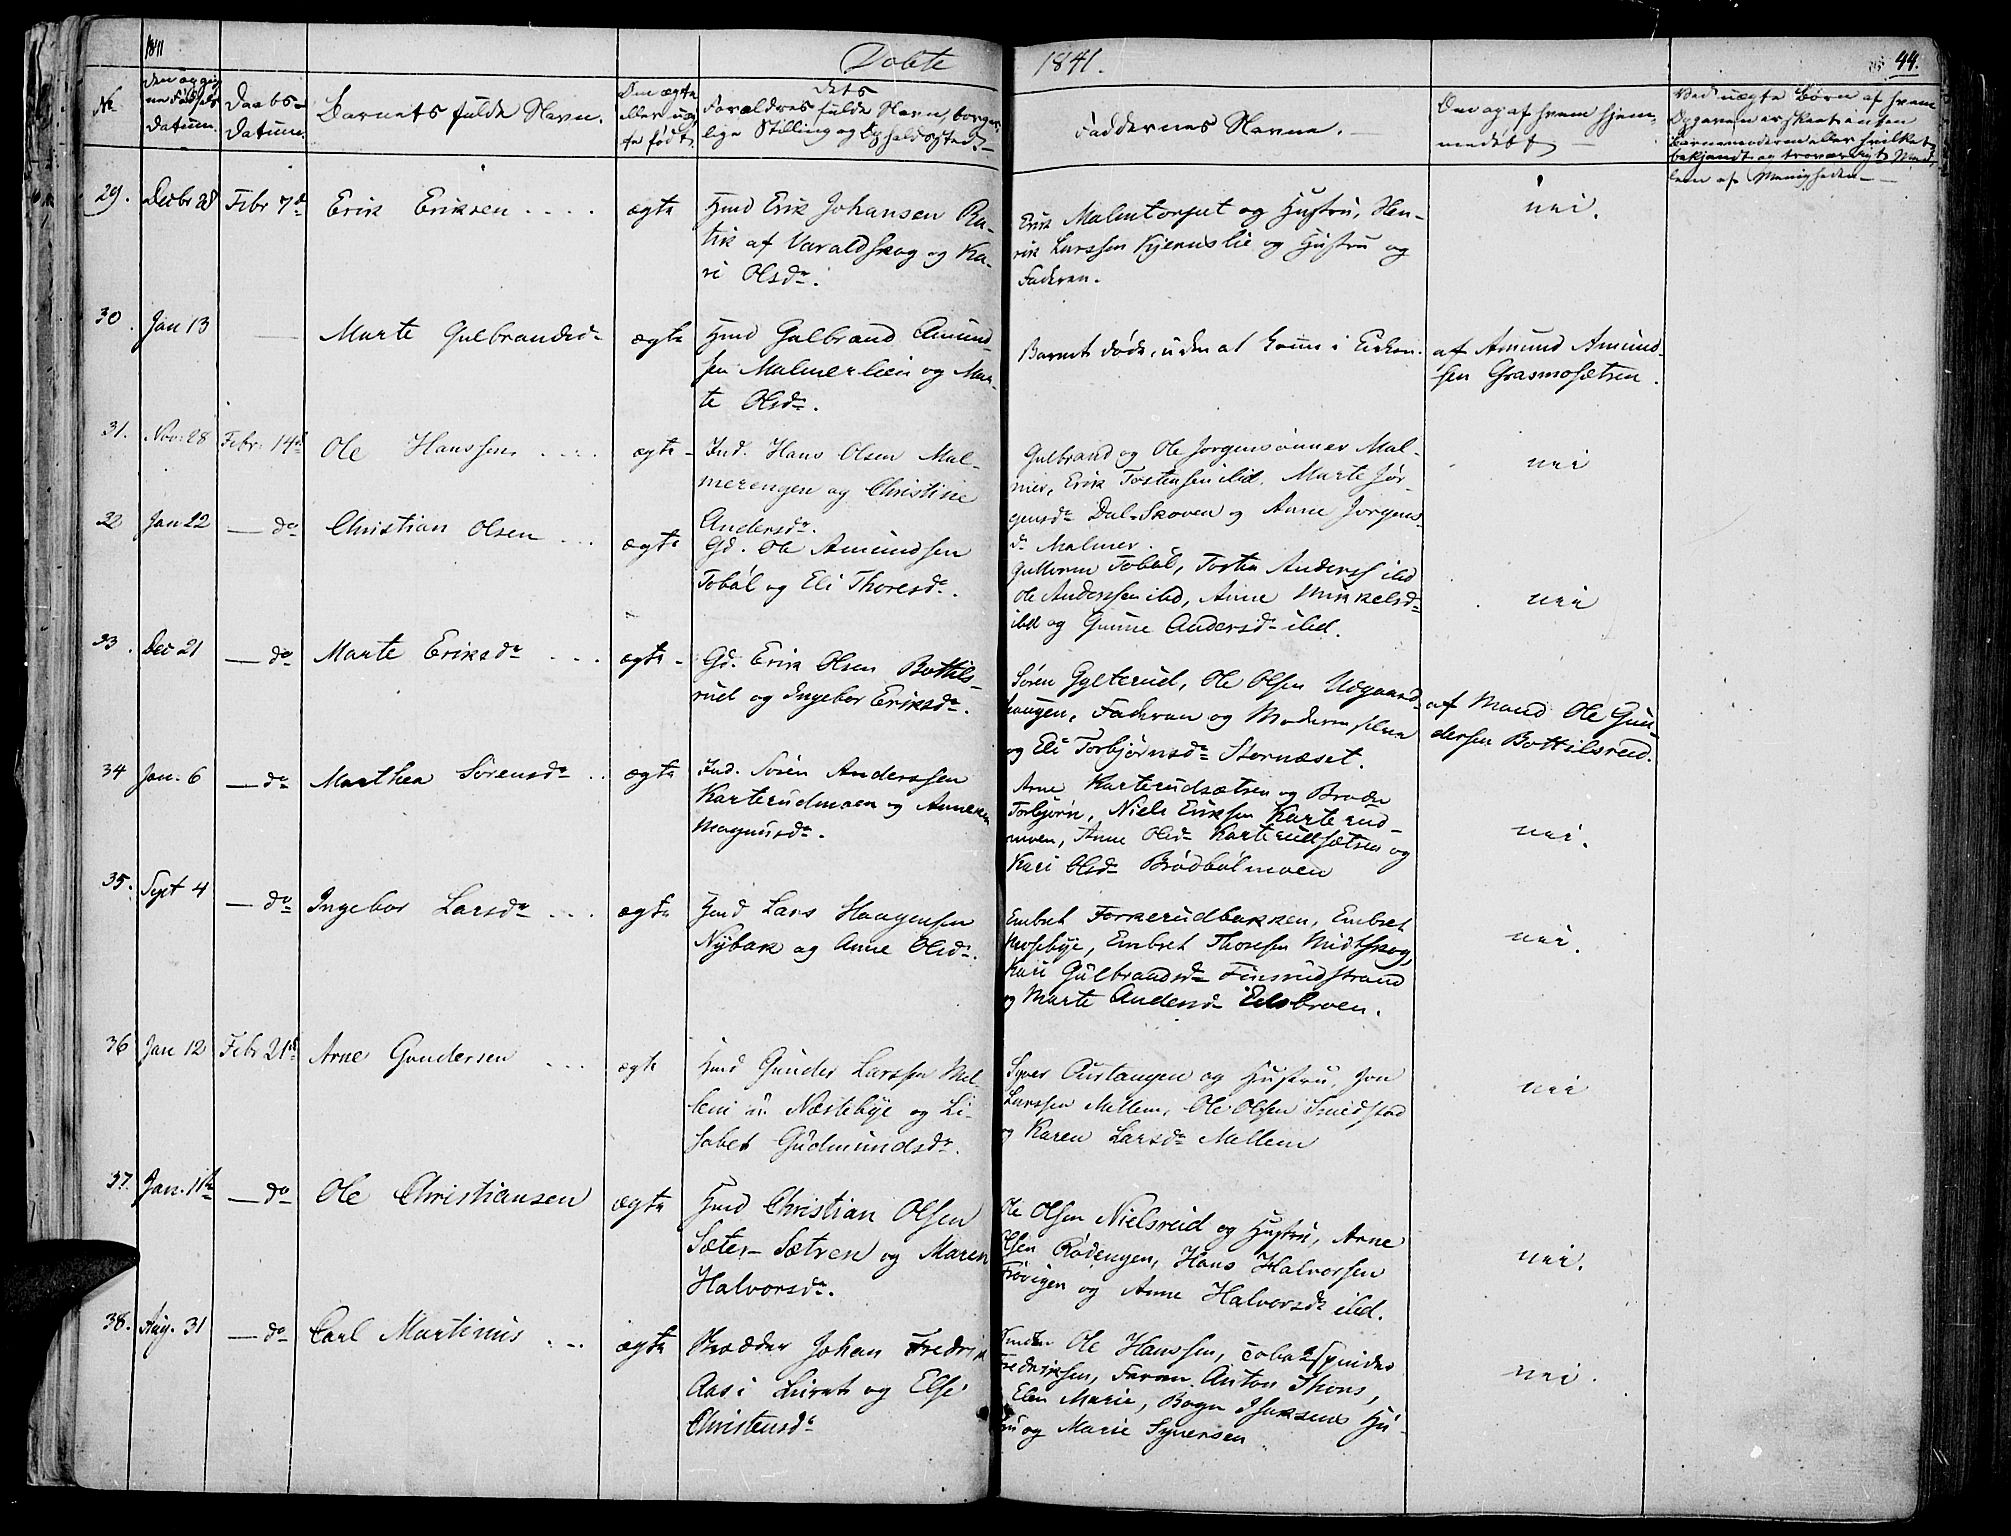 1841
Døbte
1841.
44.
No
Datum.
Daabs-
Datum.
Barnets fulde Navn.
Om ægte
eller uæg-
te født
Forældres fulde Navn, borger-
lige Stilling og Opholdssted.
Faddernes Navne.
Om og af hvem hjem-
medøbt
Ved uægte Børn af hvem
Opgaven er skeet enten
Barnemoderen eller hvilket
bekjendt og troværdigt Med-
lem af Menigheden
29. Decbr 28 Febr 7de Erik Eriksen ægte Hmd Erik Johansen Ra-
tik af Varaldskog og Ka-
ri Olsdr.
Erik Malmtorpet og Hustru, Hen-
rik Larssen Kjernslie og Hustru og
Faderen.
nei.
30. Jan 13 — Marte Gulbrandsd ægte Hmd Gulbrand Amund-
sen Malmerlien og Mar-
te Olsdr.
Barnet døde, uden at komme i Kirken.
af Amund Amund-
sen Grasmosætren.
31. Nov. 28 Febr. 14d Ole Hanssen ægte Ind. Hans Olsen Mal-
merengen og Christine
Andersdr.
Gulbrand og Ole Jørgensønner Mal-
mer, Erik Tostensen ibid. Marte Jør-
gensdr Dal-Skoven og Anne Jørgens-
dr Malmer.
nei
32 Jan 22 — do Christian Olsen ægte Gd. Ole Amundsen
Tobøl og Eli Thoresdr.
Guttorm Tobøl, Tosten Anderss ibd
Ole Anderssen ibd, Anne Mikkelsdr
ibd og Gunne Andersdr ibd.
nei
33. Dec 21 — do Marte Eriksdr ægte Gd. Erik Olsen Bottils-
rud og Ingebor Eriksdr.
Søren Gylterud, Ole Olsen Udgaard-
haugen, Faderen og Moderen selv
og Eli Torbjørnsdr Stornæset.
af Mand Ole Gun-
dersen Bottilsrud.
34 Jan. 6 — do Marthea Sørensdr ægte Ind. Søren Anderssen
Karterudmoen og Anneken
Magnusdr.
Arne Karterudsætren og Broder
Torbjørn, Niels Eriksen Karterud-
moen, Anne Olsdr Karterudsætren og
Kari Olsdr Brødbølmoen
nei.
35. Sept 4 — do Ingebor Larsdr ægte Hmd Lars Haagensen
Nybak og Anne Olsdr.
Embret Forkerudbakken, Embret
Mosebye, Embret Thoresen Midtskog,
Kari Gulbrandsdr Finsrudstrand
og Marte Andersdr Edsbroen.
nei.
36 Jan 12 Febr 21d Arne Gundersen ægte Hmd Gunder Larssen Mel-
lem u. Næstebye og Li-
sabet Gudmundsdr.
Syver Austangen og Hustru, Jon
Larssen Mellem, Ole Olsen Smedstad
og Karen Larsdr Mellem
nei
37. Jan. 11te — do Ole Christiansen ægte Hmd Christian Olsen
Sæter-Sætren og Maren
Halvorsdr.
Ole Olsen Nielsrud og Hustru, Arne
Olsen Rødengen, Hans Halvorsen
Frøvigen og Anne Halvorsdr ibd.
nei.
38. Aug. 31 — do Carl Martinus ægte Skrædder Johan Fredrik
Aas i Lurok og Else
Christensdr
Ole Hanssen, Tobakspinder
Fredriksen, Farver Anton Thons,
Elen Marie, Isaksens Hu-
stru og Marie Syversen
nei.